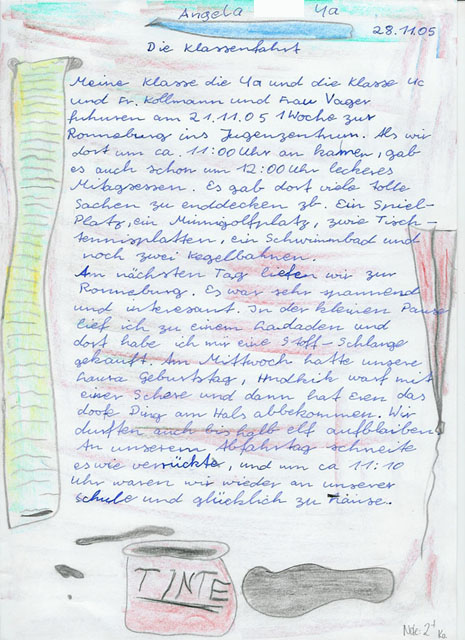 Angela 4a
28.11.05
Die Klassenfahrt
Meine Klasse die 4a und die Klasse 4c
und Fr. Kollmann und Frau Vager
fuhuren am 21.11.05 1 Woche zur
Ronneburg ins Jugenzentrum. Als wir
dort um ca. 11:00 Uhr an kamen, gab
es auch schon um 12:00 Uhr leckeres
Mitagsessen. Es gab dort viele tolle
Sachen zu enddecken zb. Ein Spiel-
Platz, ein Minnigolfplatz, zwie Tisch-
tennisplatten, ein Schwimmbad und
noch zwei Kegelbahnen.
An nächsten Tag liefen wir zur
Ronneburg. Es war sehr spannend
und interesant. In der kleinen Pause
lief ich zu einem und
dort habe ich mir eine Stoff-Schlange
gekauft. Am Mittwoch hatte unsere
Laura Geburtstag, warf mit
einer Schere und dann hat Eren das
doofe Ding am Hals abbekommen. Wir
durften auch bis halb elf aufbleiben.
An unserem Abfahrtag schneite
es wie verrückte, und um ca 11:10
Uhr waren wir wieder an unserer
schule und glücklich zu Hause.
TINTE
Note: 2+